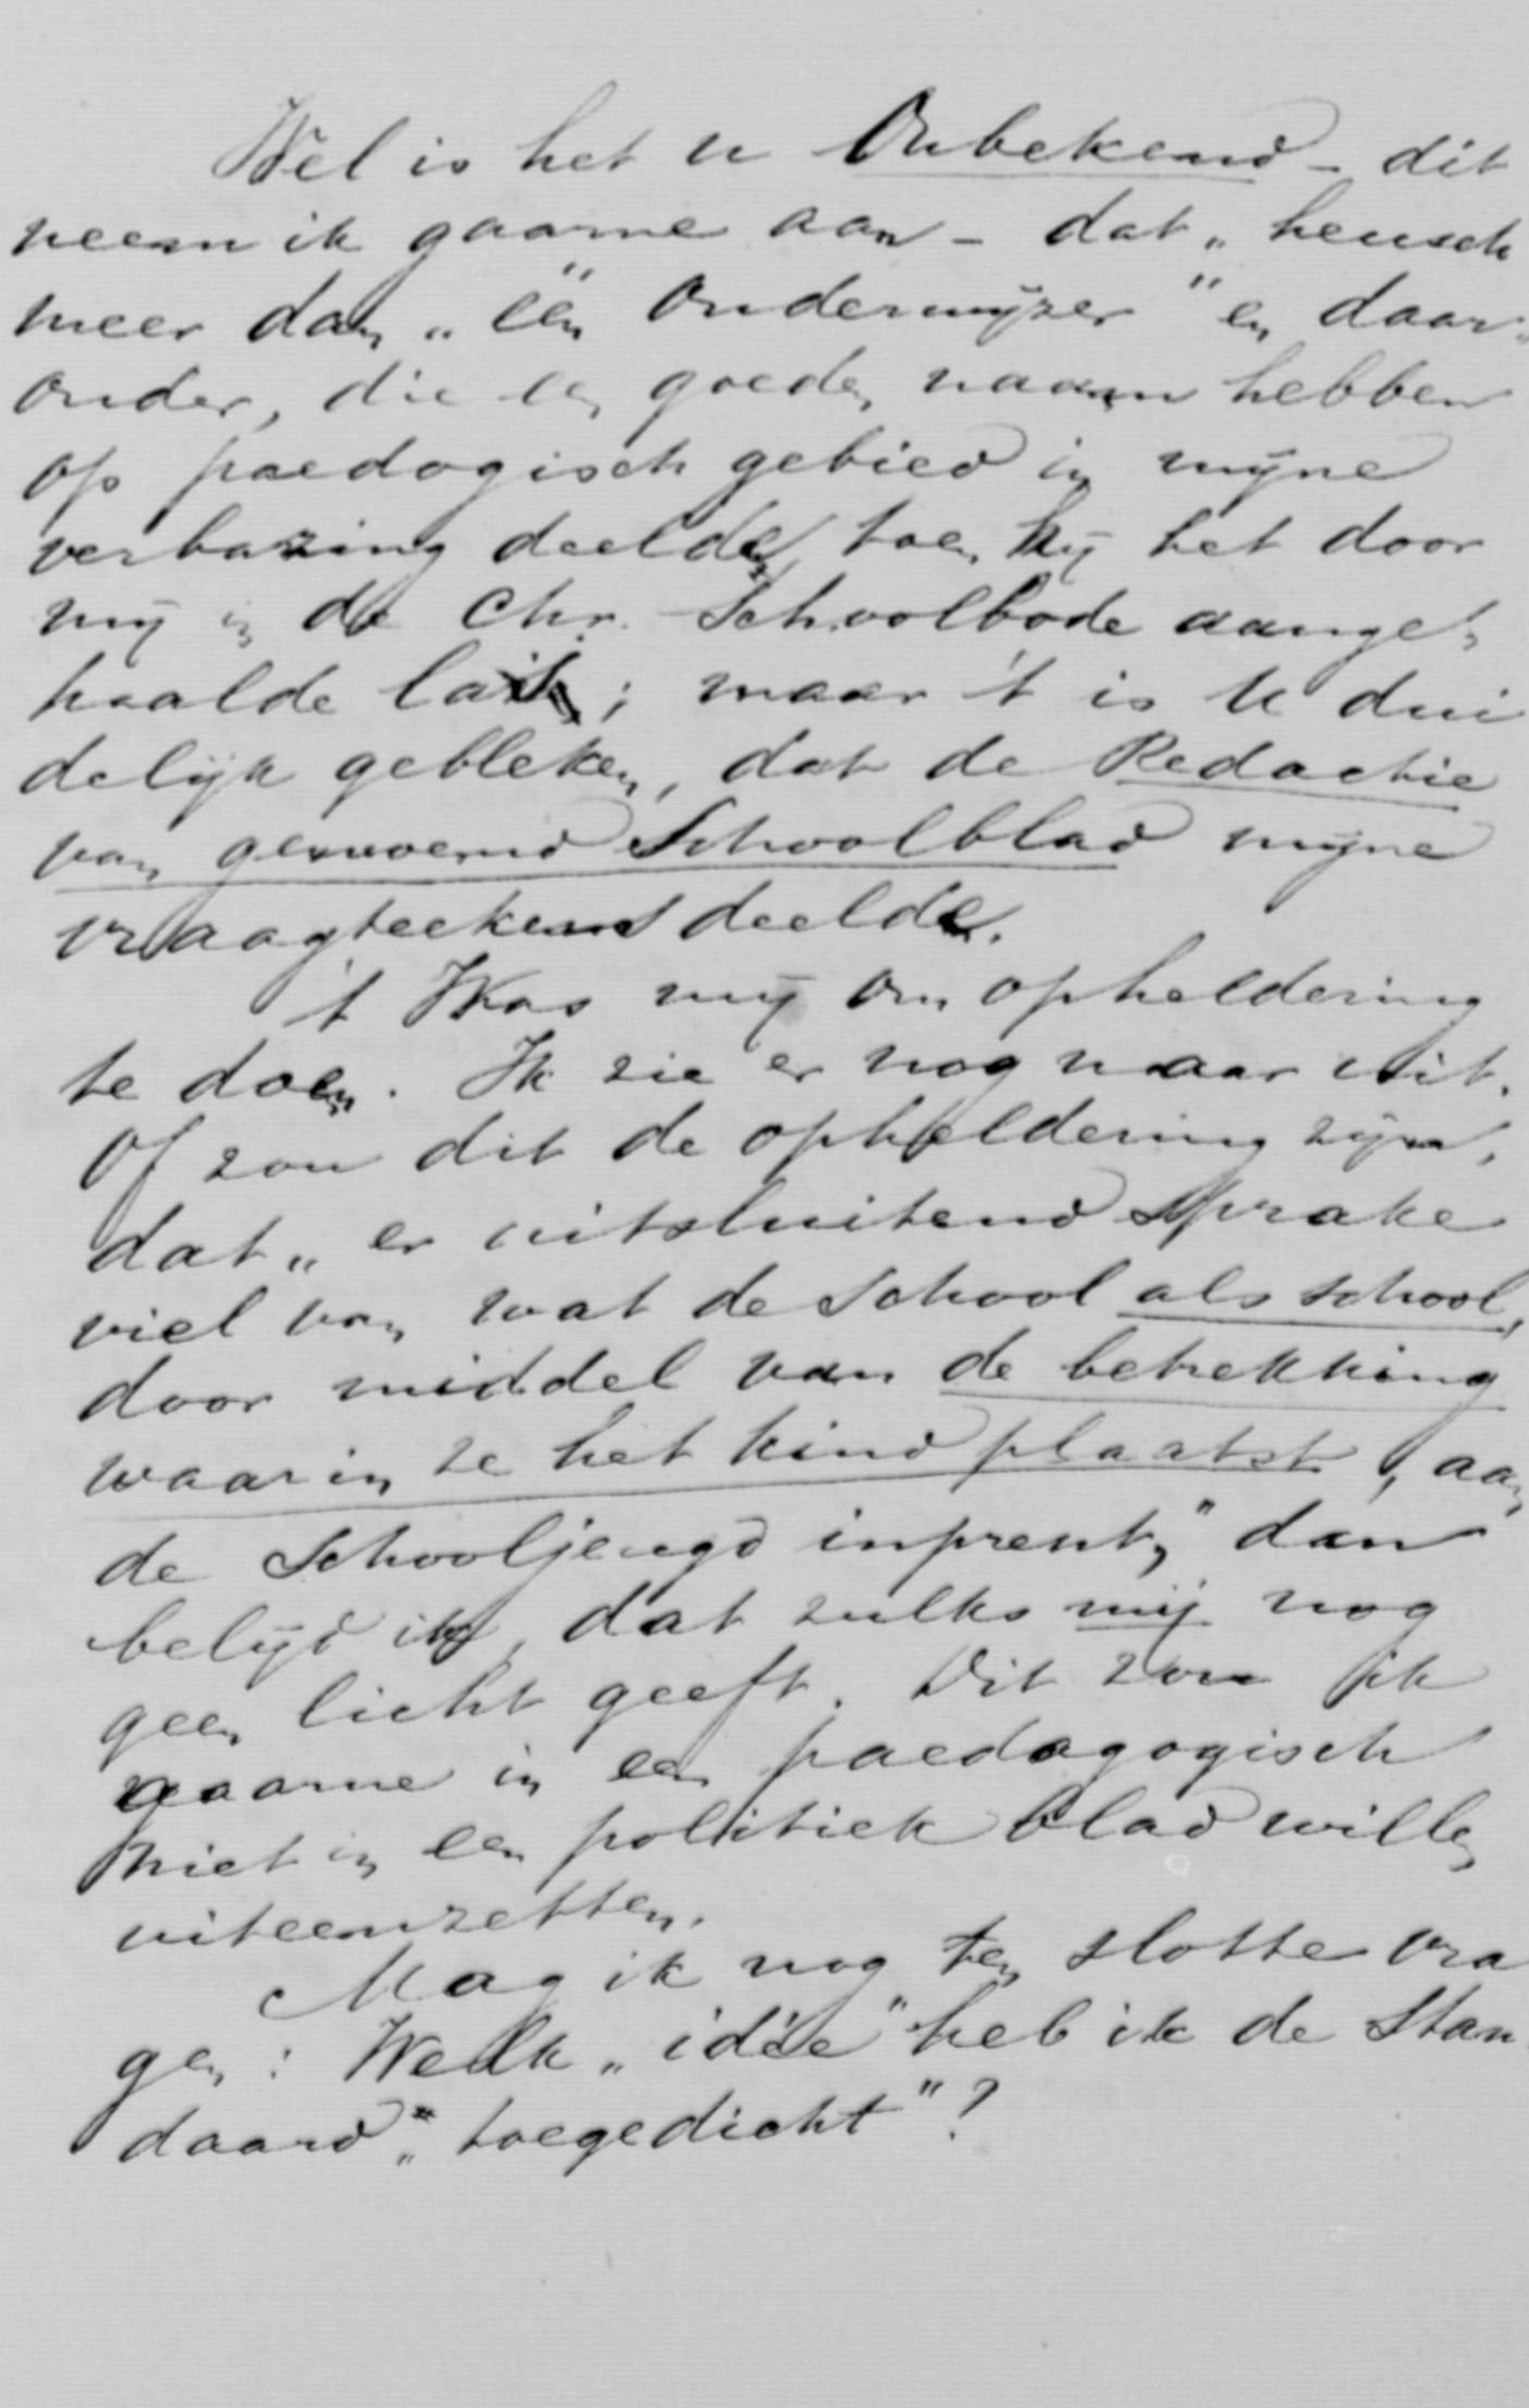 Wel is het u Onbekend – dit
neem ik gaarne aan – dat „heusch
meer dan „één Onderwijzer" en daar-
onder, die een goeden naam hebben
op paedogisch gebied in mijne
verbazing deelde, toen hij het door
mij in de Chr. Schoolbode aange-
haalde las; maar 't is U dui
delijk gebleken, dat de Redactie
van genoemd Schoolblad mijne
vraagteekens deelde.
't Was mij om opheldering
te doen. Ik zie er nog naar uit.
Of zou dit de opheldering zijn,
dat „er uitsluitend sprake
viel van wat de School als school,
door middel van de betrekking
waarin ze het kind plaatst, aan
de Schooljeugd inprent," dan
belijd ik, dat zulks mij nog
geen licht geeft. Dit zou ik
gaarne in een paedagogisch
niet in een politiek blad willen
uiteenzetten.
Mag ik nog ten slotte vra
gen: Welk „idée" heb ik de Stan
daard „toegedicht"?